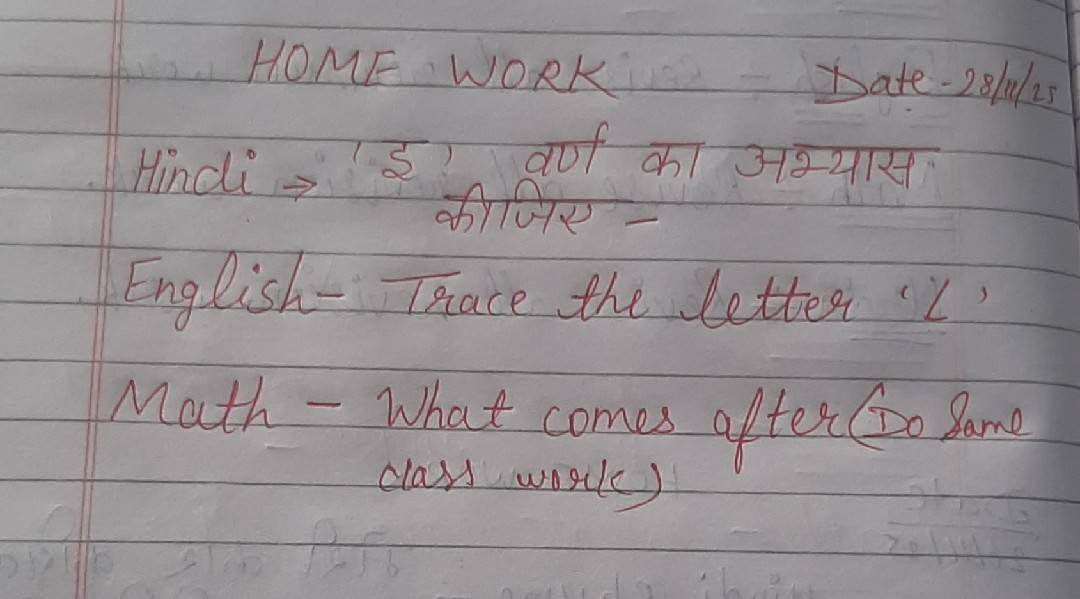 HOME WORK Date - 28/11/25
Hindi → 'इ' वर्ण का अभ्यास
कीजिए -
English - Trace the letter 'L'
Math - What comes after (Do Same
class work)